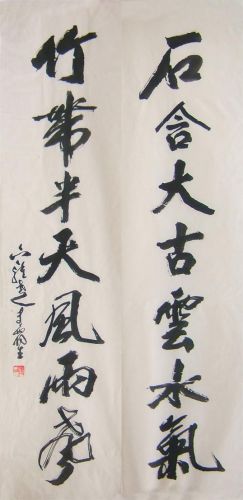 石含大古雲水氣
竹帶半天風雨聲